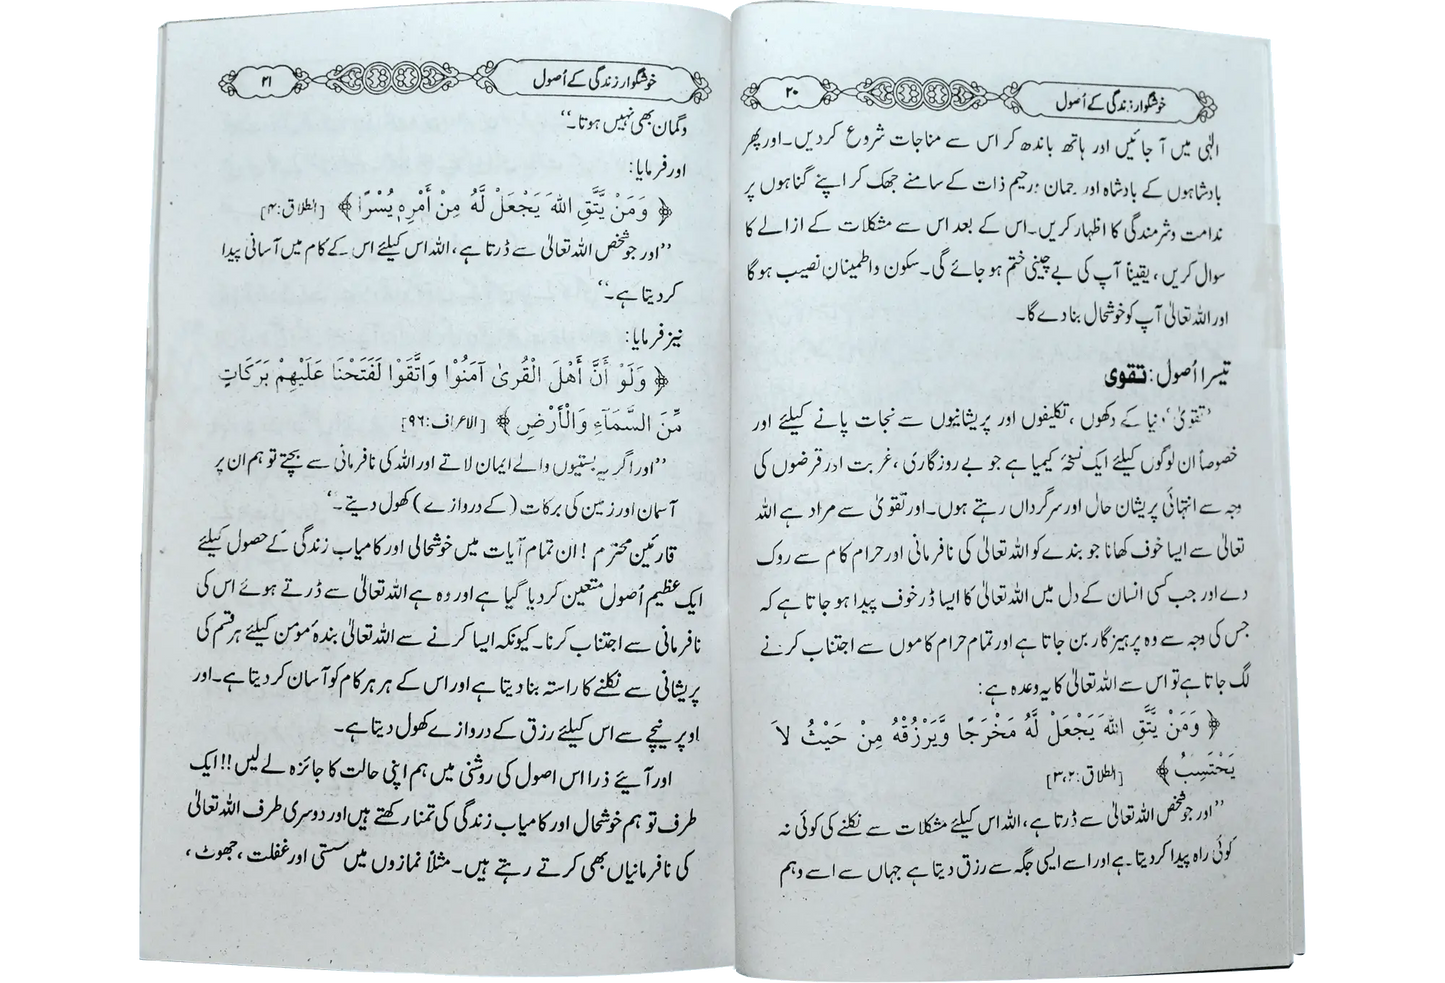 خوشگوار زندگی کے اُصول
۲۰
الٰہی میں آ جائیں اور ہاتھ باندھ کر اس سے مناجات شروع کر دیں۔ اور پھر
بادشاہوں کے بادشاہ اور رحمان ورحیم ذات کے سامنے جھک کر اپنے گناہوں پر
ندامت وشرمندگی کا اظہار کریں۔ اس کے بعد اس سے مشکلات کے ازالے کا
سوال کریں ، یقیناً آپ کی بے چینی ختم ہو جائے گی۔ سکون واطمینان نصیب ہو گا
اور اللہ تعالیٰ آپ کو خوشحال بنا دے گا۔
تیسرا اُصول : تقوی
’تقویٰ‘ دنیا کے دکھوں ، تکلیفوں اور پریشانیوں سے نجات پانے کیلئے اور
خصوصاً ان لوگوں کیلئے ایک نسخۂ کیمیا ہے جو بے روزگاری ، غربت اور قرضوں کی
وجہ سے انتہائی پریشان حال اور سرگرداں رہتے ہوں۔ اور تقویٰ سے مراد ہے اللہ
تعالیٰ سے ایسا خوف کھانا جو بندے کو اللہ تعالیٰ کی نافرمانی اور حرام کام سے روک
دے اور جب کسی انسان کے دل میں اللہ تعالیٰ کا ایسا ڈر خوف پیدا ہو جاتا ہے کہ
جس کی وجہ سے وہ پرہیز گار بن جاتا ہے اور تمام حرام کاموں سے اجتناب کرنے
لگ جاتا ہے تو اس سے اللہ تعالیٰ کا یہ وعدہ ہے :
﴿ وَمَنْ يَّتَّقِ اللهَ يَجْعَلْ لَّهُ مَخْرَجًا وَّيَرْزُقْهُ مِنْ حَيْثُ لاَ
يَحْتَسِبُ ﴾ [الطلاق:۲،۳]
’’اور جو شخص اللہ تعالیٰ سے ڈرتا ہے ، اللہ اس کیلئے مشکلات سے نکلنے کی کوئی نہ
کوئی راہ پیدا کر دیتا ہے اور اسے ایسی جگہ سے رزق دیتا ہے جہاں سے اسے وہم
خوشگوار زندگی کے اُصول
۲۱
وگمان بھی نہیں ہوتا۔‘‘
اور فرمایا :
﴿ وَمَنْ يَّتَّقِ اللهَ يَجْعَلْ لَّهُ مِنْ أَمْرِهِ يُسْرًا ﴾ [الطلاق:۴]
’’اور جو شخص اللہ تعالیٰ سے ڈرتا ہے ، اللہ اس کیلئے اس کے کام میں آسانی پیدا
کر دیتا ہے۔‘‘
نیز فرمایا :
﴿ وَلَوْ أَنَّ أَهْلَ الْقُرىٰ آمَنُوْا وَاتَّقَوْا لَفَتَحْنَا عَلَيْهِمْ بَرَكَاتٍ
مِّنَ السَّمَآءِ وَالْأَرْضِ ﴾ [الاعراف:۹۶]
’’اور اگر یہ بستیوں والے ایمان لاتے اور اللہ کی نافرمانی سے بچتے تو ہم ان پر
آسمان اور زمین کی برکات (کے دروازے) کھول دیتے۔‘
قارئین محترم ! ان تمام آیات میں خوشحالی اور کامیاب زندگی کے حصول کیلئے
ایک عظیم اُصول متعین کر دیا گیا ہے اور وہ ہے اللہ تعالیٰ سے ڈرتے ہوئے اس کی
نافرمانی سے اجتناب کرنا۔ کیونکہ ایسا کرنے سے اللہ تعالیٰ بندۂ مومن کیلئے ہر قسم کی
پریشانی سے نکلنے کا راستہ بنا دیتا ہے اور اس کے ہر ہر کام کو آسان کر دیتا ہے۔ اور
اوپر نیچے سے اس کیلئے رزق کے دروازے کھول دیتا ہے۔
اور آیئے ذرا اس اصول کی روشنی میں ہم اپنی حالت کا جائزہ لے لیں!! ایک
طرف تو ہم خوشحال اور کامیاب زندگی کی تمنا رکھتے ہیں اور دوسری طرف اللہ تعالیٰ
کی نافرمانیاں بھی کرتے رہتے ہیں۔ مثلاً نمازوں میں سستی اور غفلت ، جھوٹ ،